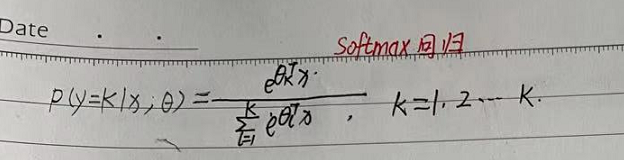 Date . .
Softmax 回归
P(y=k|x;θ) = e^{θ_k^T x} / ∑_{l=1}^{K} e^{θ_l^T x} , k=1, 2 ··· K.